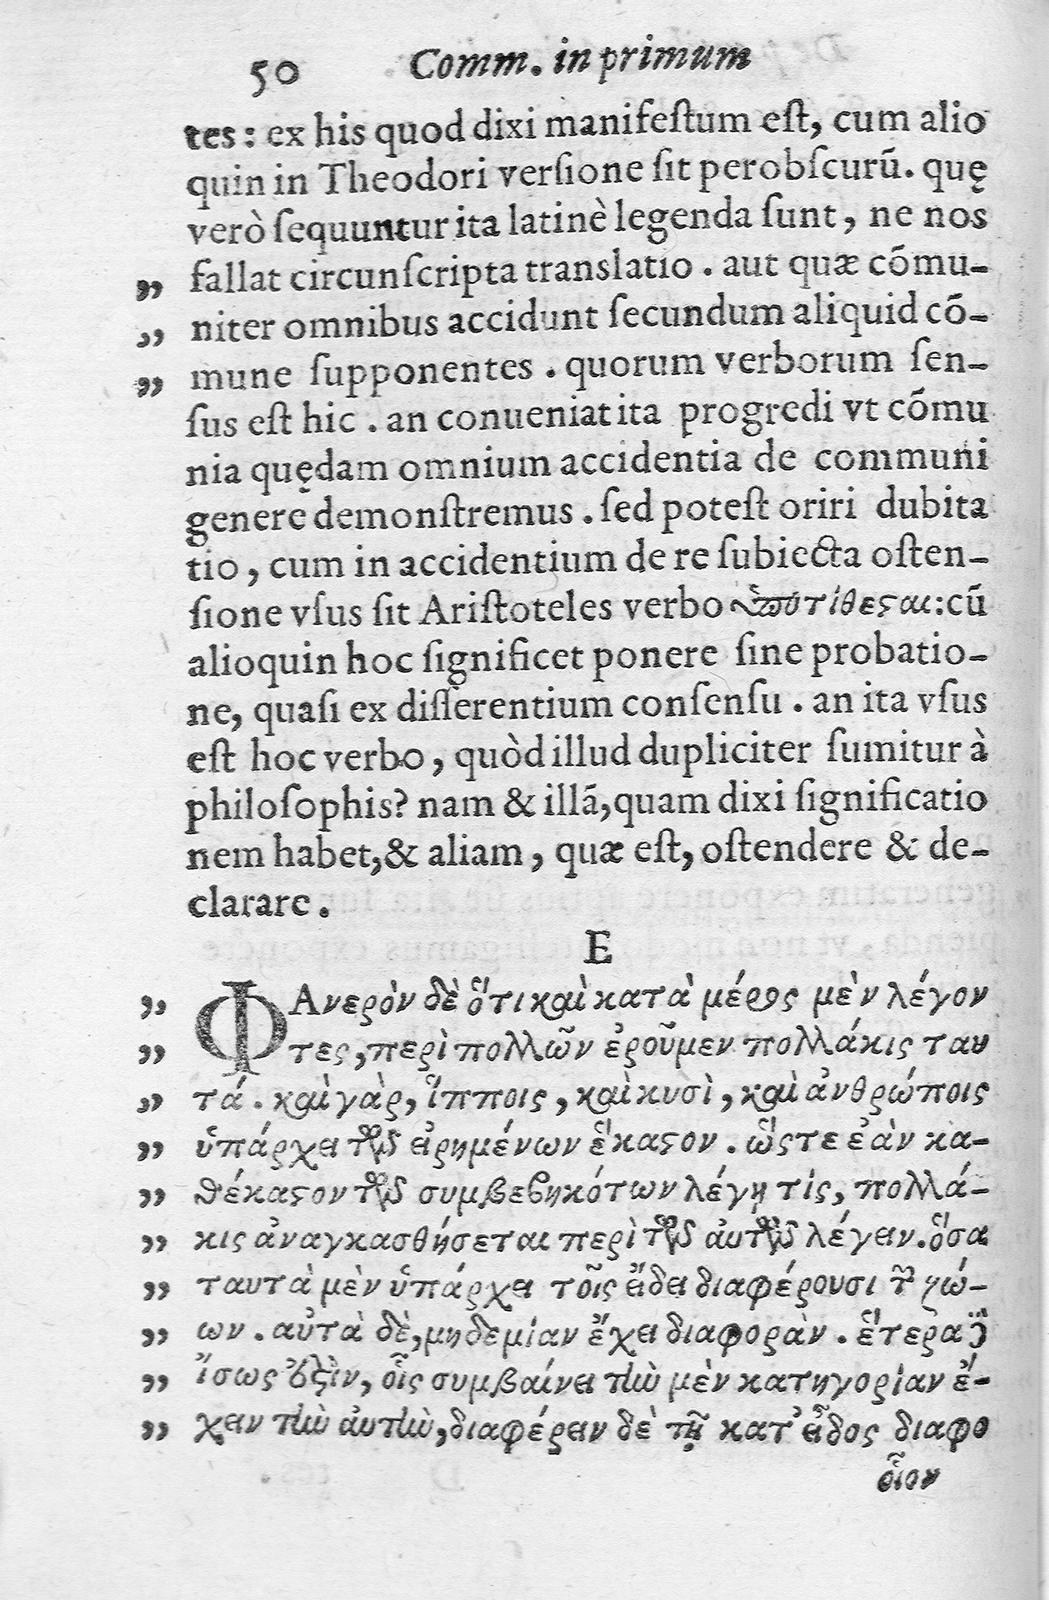 50 Comm. in primum
tes: ex his quod dixi manifeſtum eſt, cum alio
quin in Theodori verſione ſit perobſcurũ. quę
verò ſequuntur ita latinè legenda ſunt, ne nos
„ fallat circunſcripta translatio. aut quæ cõmu-
„ niter omnibus accidunt ſecundum aliquid cõ-
„ mune ſupponentes. quorum verborum ſen-
ſus eſt hic. an conueniat ita progredi vt cõmu
nia quędam omnium accidentia de communi
genere demonſtremus. ſed poteſt oriri dubita
tio, cum in accidentium de re ſubiecta oſten-
ſione vſus ſit Ariſtoteles verbo ὑποτίθεϛαι: cũ
alioquin hoc ſignificet ponere ſine probatio-
ne, quaſi ex diſſerentium conſenſu. an ita vſus
eſt hoc verbo, quòd illud dupliciter ſumitur à
philoſophis? nam & illã, quam dixi ſignificatio
nem habet, & aliam, quæ eſt, oſtendere & de-
clarare.
E
„ ΦΑνερὸν δὲ ὅτι καὶ κατὰ μέρος μὲν λέγον
„ τες, περὶ πολλῶν ἐροῦμεν πολλάκις ταυ
„ τά. καὶ γὰρ, ἵπποις, καὶ κυσὶ, καὶ ἀνθρώποις
„ ὑπάρχει τῶν εἰρημένων ἕκαϛον. ὥϛτε ἐὰν κα-
„ θέκαϛον τῶν συμβεβηκότων λέγῃ τίς, πολλά-
„ κις ἀναγκασθήσεται περὶ τῶν αὐτῶν λέγειν. ὅσα
„ ταυτὰ μὲν ὑπάρχει τοῖς εἴδει διαφέρουσι τῶν ζώ-
„ ων. αὐτὰ δὲ, μηδεμίαν ἔχει διαφορὰν. ἕτερα δὲ
„ ἴσως ἐϛὶν, οἷς συμβαίνει τὴν μὲν κατηγορίαν ἔ-
„ χειν τὴν αὐτὴν, διαφέρειν δὲ τῇ κατ᾽ εἶδος διαφο
οἷον